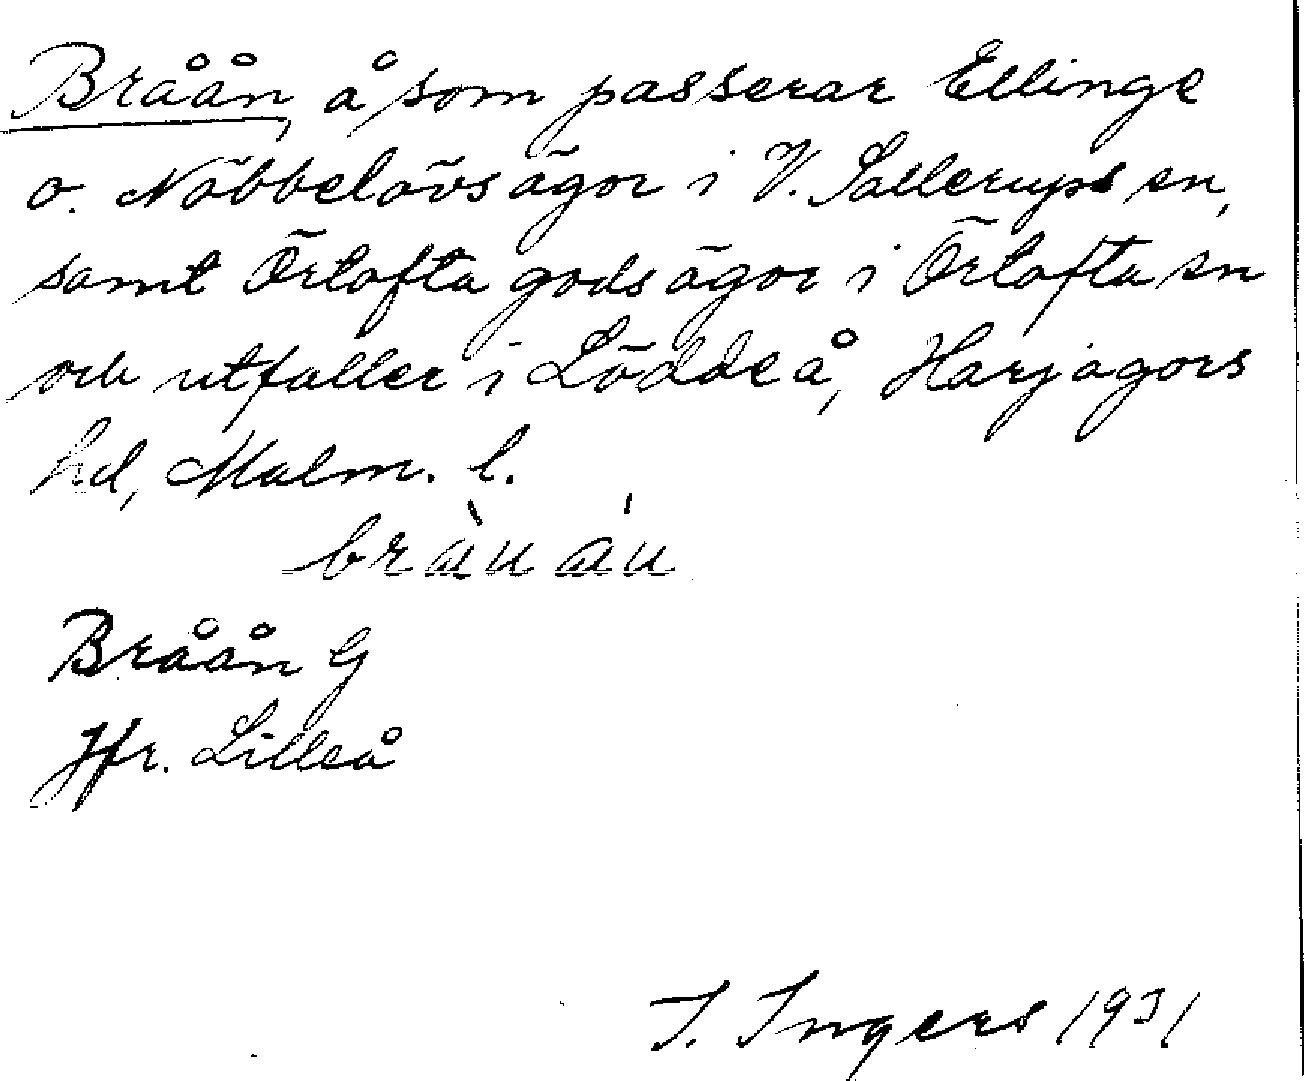 Bråån, å som passerar Ellinge
o. Nöbbelövs ägor i V. Sallerups sn,
samt Örtofta gods ägor i Örtofta sn
och utfaller i Löddeå, Harjagers
hd, Malm. l.
bràu áu
Bråån G
Jfr. Lilleå
I. Ingers 1931